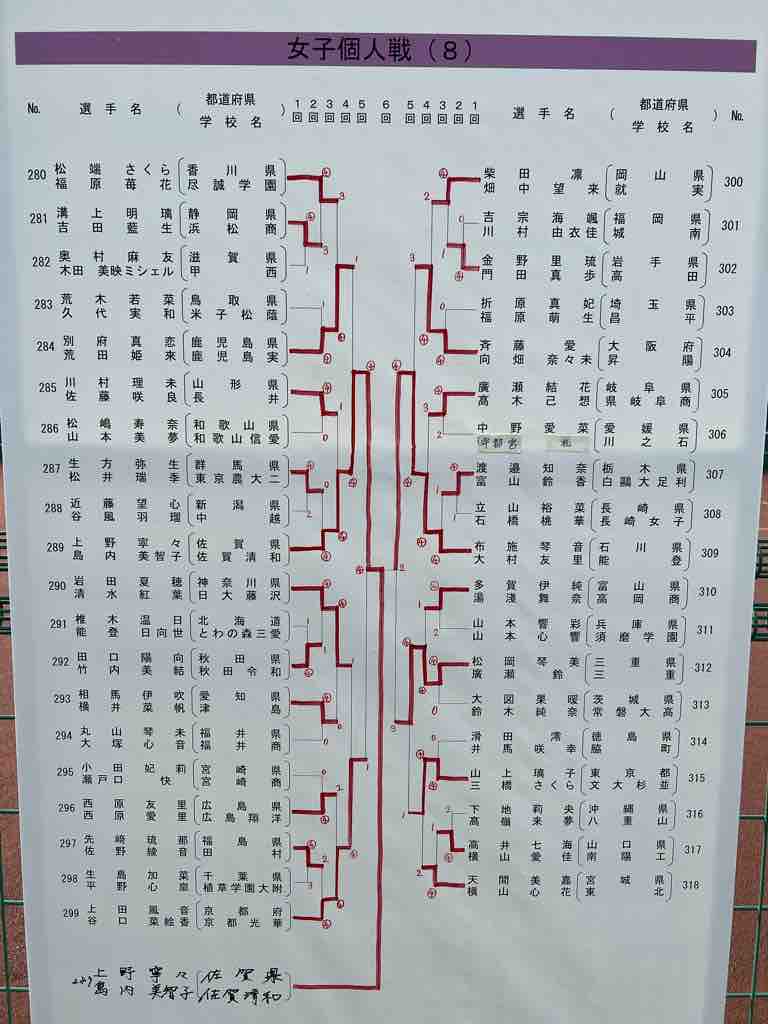 女子個人戦（8）
No. 選手名 （都道府県 学校名） 1回 2回 3回 4回 5回 6回 5回 4回 3回 2回 1回 選手名 （都道府県 学校名） No.
280 松端さくら 香川県
福原苺花 尽誠学園
281 溝上明璃 静岡県
吉田藍生 浜松商
282 奥村麻友 滋賀県
木田美映ミシェル 甲西
283 荒木若菜 鳥取県
久代実和 米子松蔭
284 別府真恋 鹿児島県
荒田姫來 鹿児島実
285 川村理未 山形県
佐藤咲良 長井
286 松嶋寿奈 和歌山県
山本美夢 和歌山信愛
287 生方弥生 群馬県
松井瑞季 東京農大二
288 近藤望心 新潟県
谷風羽瑠 中越
289 上野寧々 佐賀県
島内美智子 佐賀清和
290 岩田夏穂 神奈川県
清水紅葉 日大藤沢
291 椎木温日 北海道
能登日向世 とわの森三愛
292 田口陽向 秋田県
竹内美結 秋田令和
293 相馬伊吹 愛知県
横井菜帆 津島
294 丸山琴未 福井県
大塚心音 福井商
295 小田妃莉 宮崎県
瀬戸口快 宮崎商
296 西原友里 広島県
西原愛里 広島翔洋
297 先﨑琉那 福島県
佐野綾音 田村
298 生島加菜 千葉県
平野心 植草学園大附
299 上田風音 京都府
谷口菜絵香 京都光華
289 上野寧々 佐賀県
島内美智子 佐賀清和
柴田凛 岡山県 300
畑中望来 就実
吉宗海颯 福岡県 301
川村由衣佳 城南
金野里琉 岩手県 302
門田真歩 高田
折原真妃 埼玉県 303
福原萌生 昌平
斉藤愛 大阪府 304
向畑奈々未 昇陽
廣瀬結花 岐阜県 305
髙木己想 県岐阜商
中野愛菜 愛媛県 306
宇都宮 札 川之石
渡邉知奈 栃木県 307
富山鈴香 白鷗大足利
立石裕菜 長崎県 308
石橋桃華 長崎女子
布施琴音 石川県 309
大村友里 能登
多賀伊純 富山県 310
湯浅舞奈 高岡商
山本響彩 兵庫県 311
山本心響 須磨学園
松岡琴美 三重県 312
廣瀬鈴 三重
大図果暖 茨城県 313
鈴木純奈 常磐大高
滑田澪 徳島県 314
井馬咲幸 脇町
山上璃子 東京都 315
三橋さくら 文大杉並
下地莉央 沖縄県 316
髙嶺来夢 八重山
高井七海 山口県 317
横山愛佳 南陽工
天間美嘉 宮城県 318
横山心花 東北